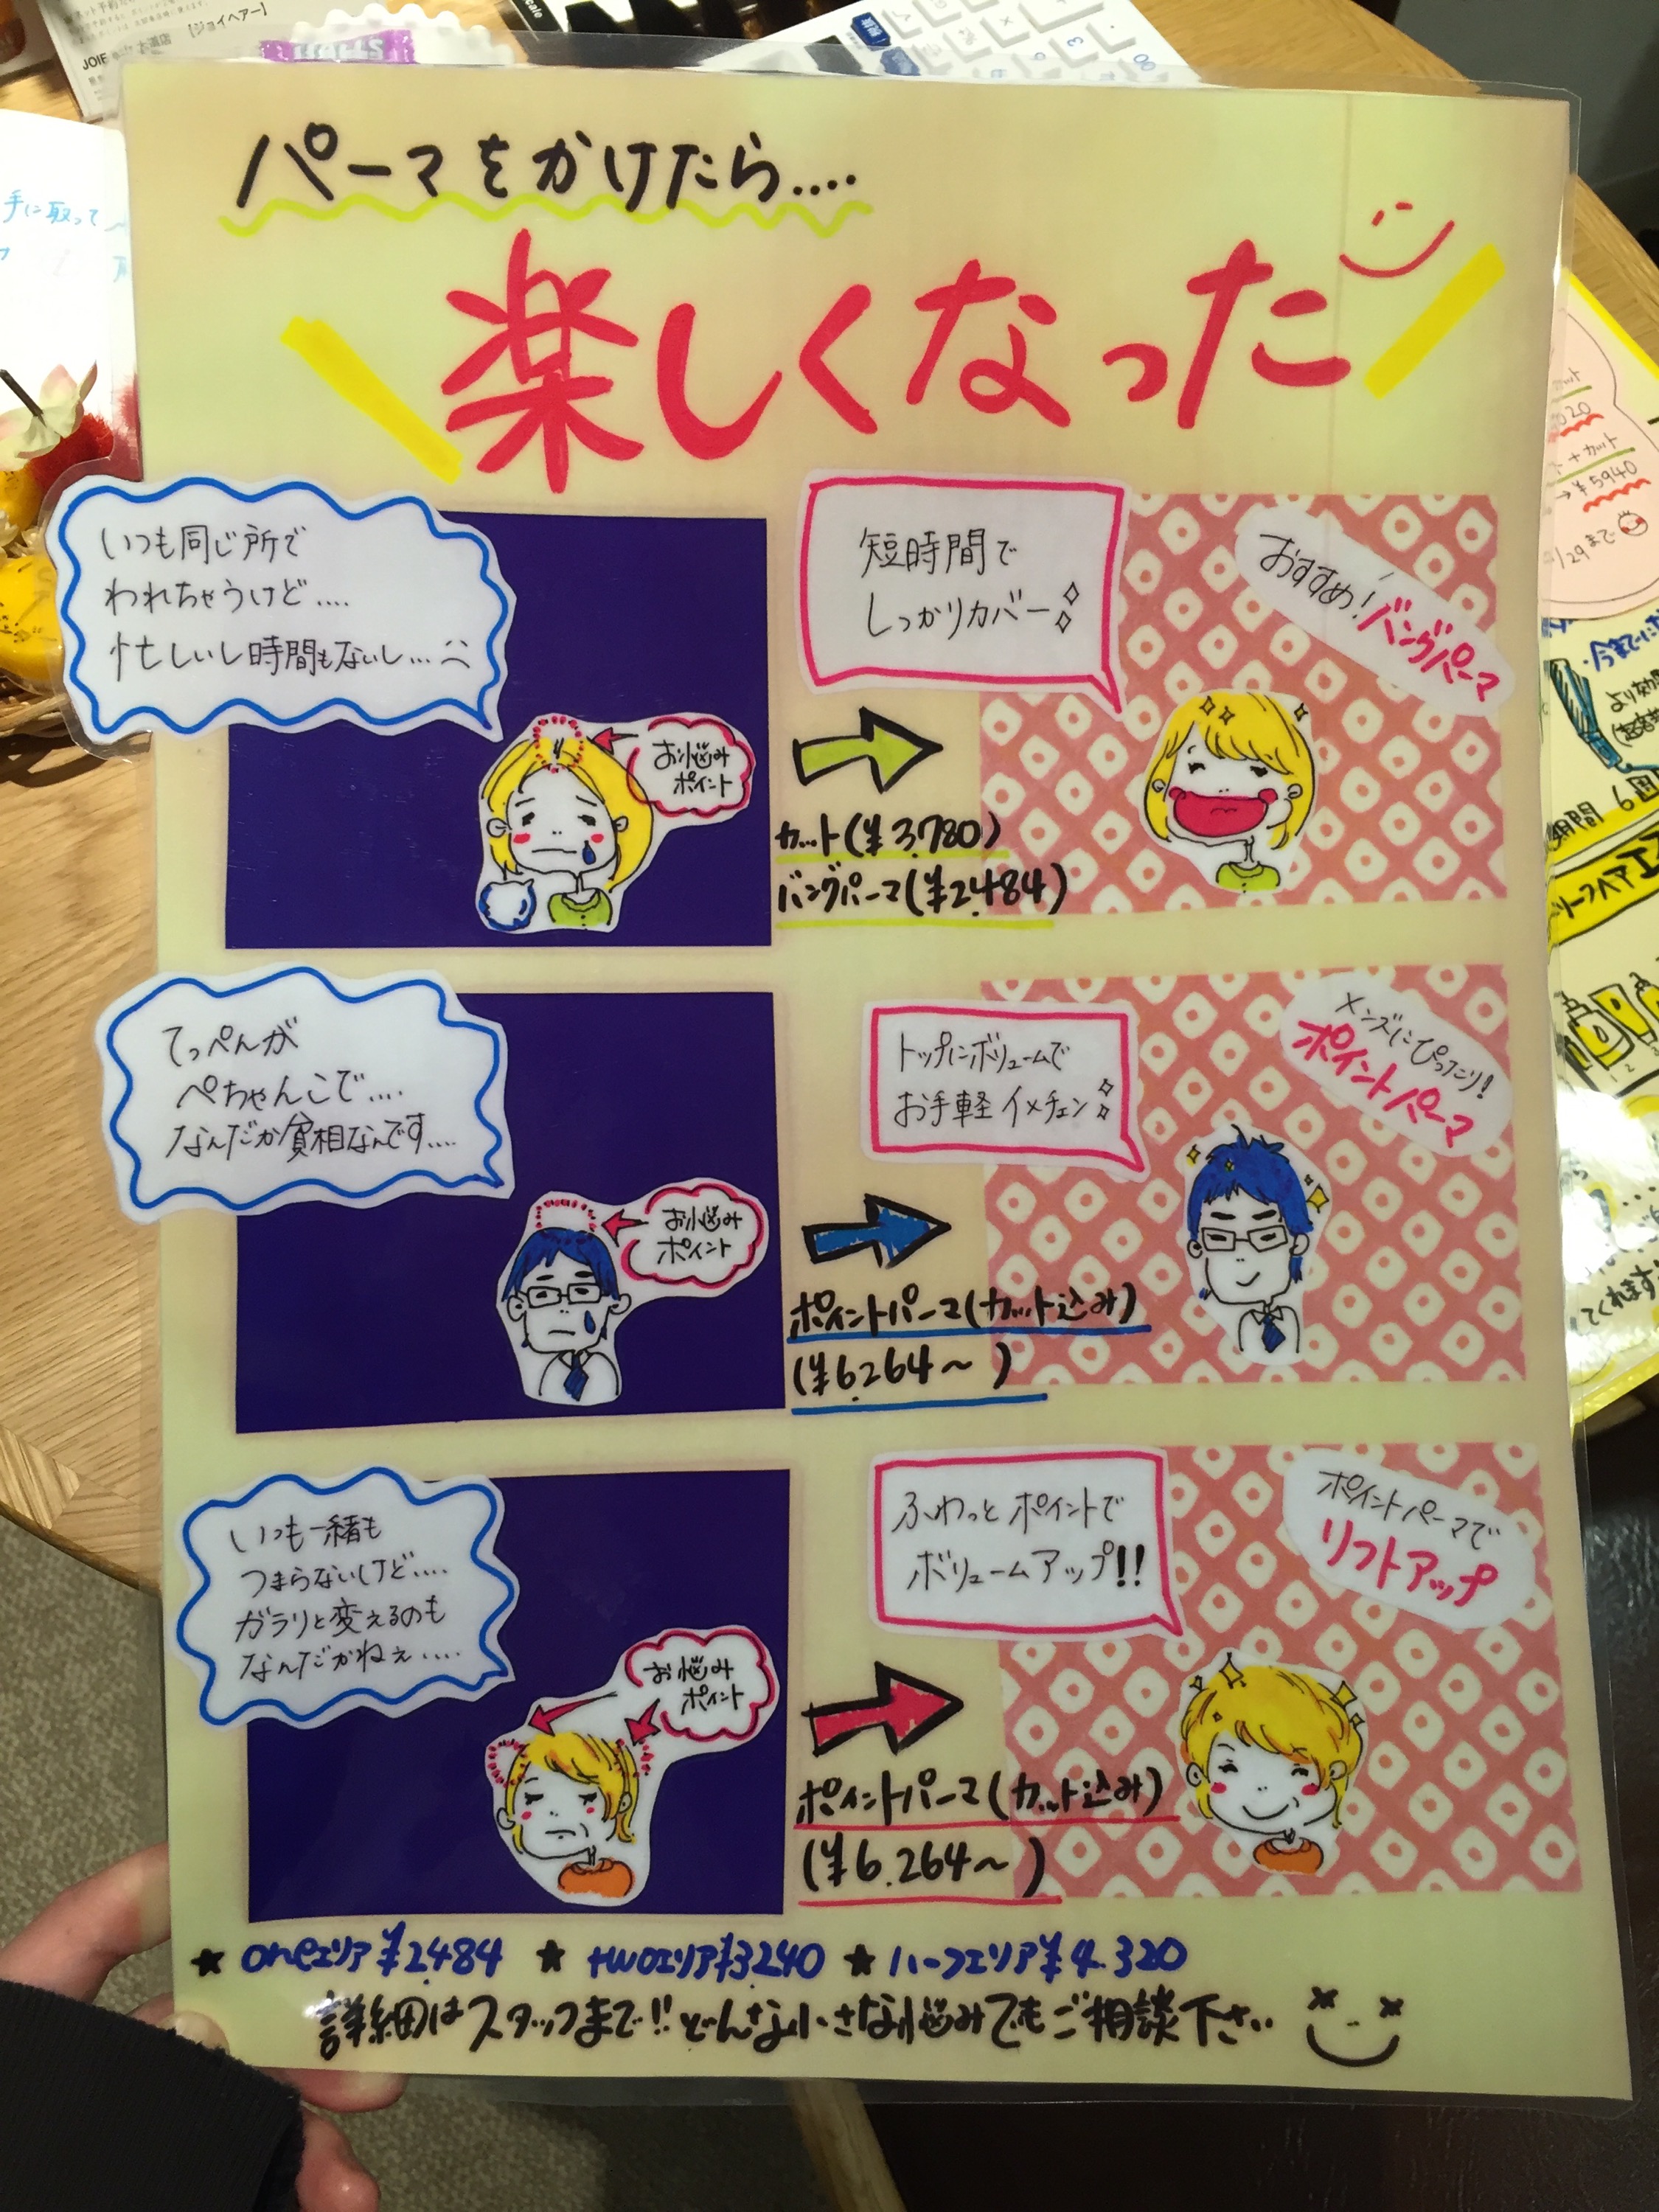 パーマをかけたら....
楽しくなった
いつも同じ所で
われちゃうけど....
忙しいし時間もないし...
お悩み
ポイント
カット(¥3.780)
バングパーマ(¥2.484)
短時間で
しっかりカバー
おすすめ!バングパーマ
てっぺんが
ぺちゃんこで....
なんだか貧相なんです....
お悩み
ポイント
ポイントパーマ(カット込み)
(¥6.264〜 )
トップにボリュームで
お手軽イメチェン
メンズにぴったり!
ポイントパーマ
いつも一緒も
つまらないけど....
ガラリと変えるのも
なんだかねぇ.....
お悩み
ポイント
ポイントパーマ(カット込み)
(¥6.264〜 )
ふわっとポイントで
ボリュームアップ!!
ポイントパーマで
リフトアップ
★ oneエリア¥2.484 ★ twoエリア¥3240 ★ ハーフエリア¥4.320
詳細はスタッフまで!!どんな小さな悩みでもご相談下さい
JOIE
[ジョイヘアー]
手に取って
+カット
→¥5940
/29まで
期間 6回
てくれます